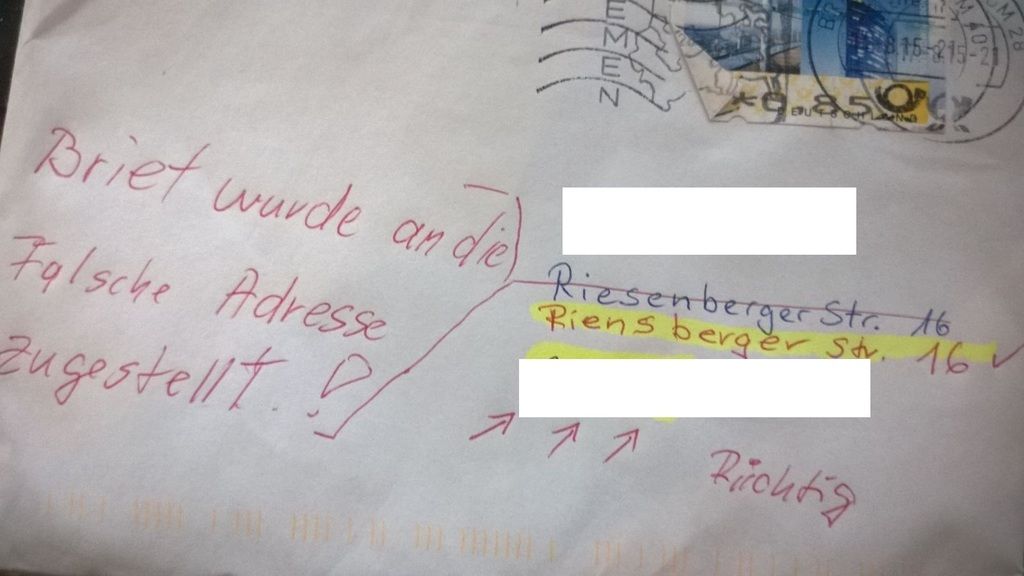 EMEN
8.15-21
*0,85
DEUTSCHLAND
Brief wurde an die
Falsche Adresse
zugestellt.!
Riesenberger Str. 16
Riensberger Str. 16
Richtig